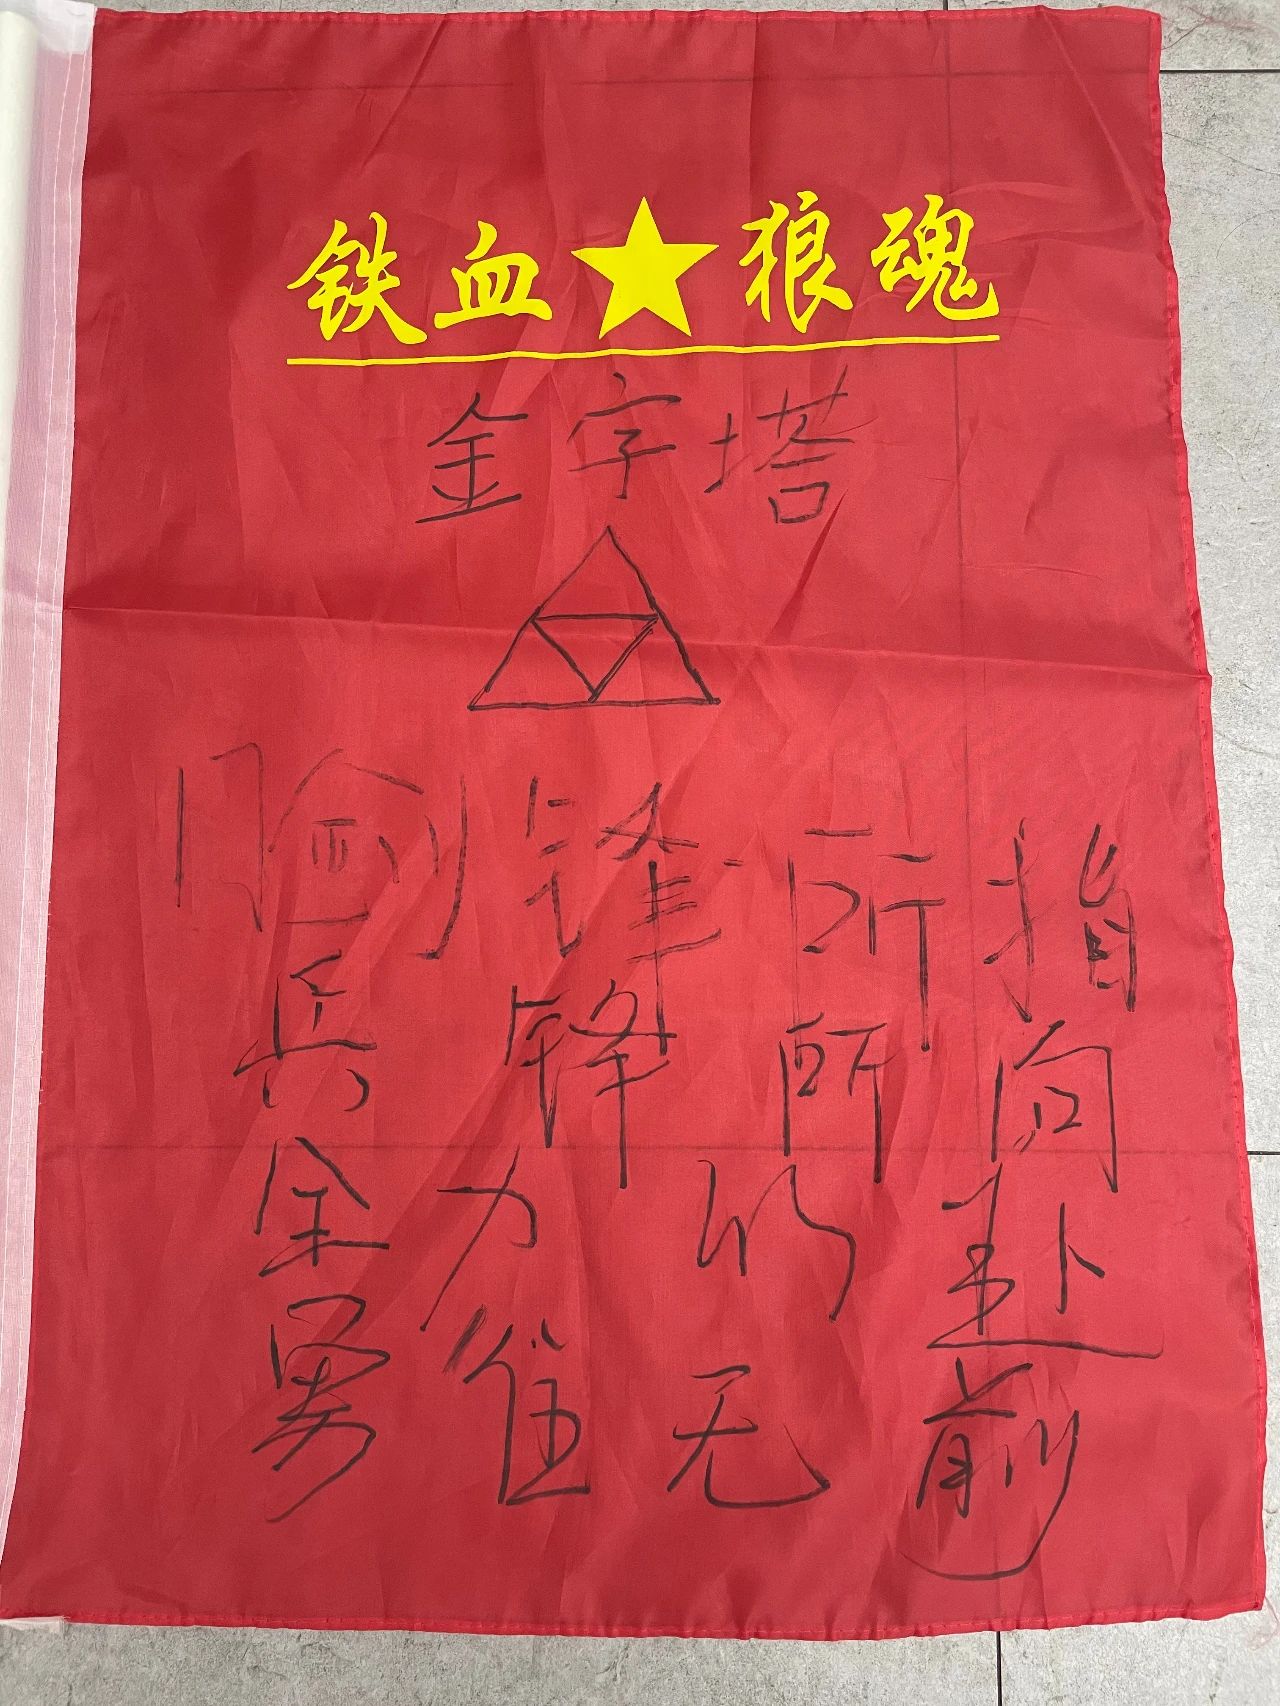 铁血★狼魂
金字塔
剑锋所指
兵锋所向
全力以赴
勇往无前